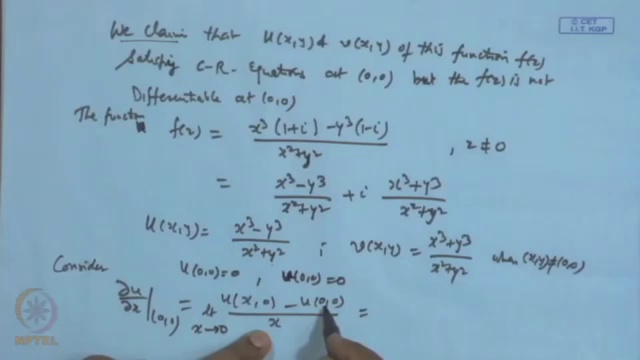 © CET
I.I.T. KGP
We claim that u(x,y) & v(x,y) of this function f(z)
Satisfying C-R-Equations at (0,0) but the f(z) is not
Differentiable at (0,0)
The function f(z) = x³(1+i) - y³(1-i) / x²+y² , z ≠ 0
= x³-y³ / x²+y² + i x³+y³ / x²+y²
u(x,y) = x³-y³ / x²+y² ; v(x,y) = x³+y³ / x²+y² when (x,y)≠(0,0)
Consider u(0,0)=0 , v(0,0)=0
∂u/∂x |(0,0) = lt x→0 u(x,0) - u(0,0) / x =
NPTEL